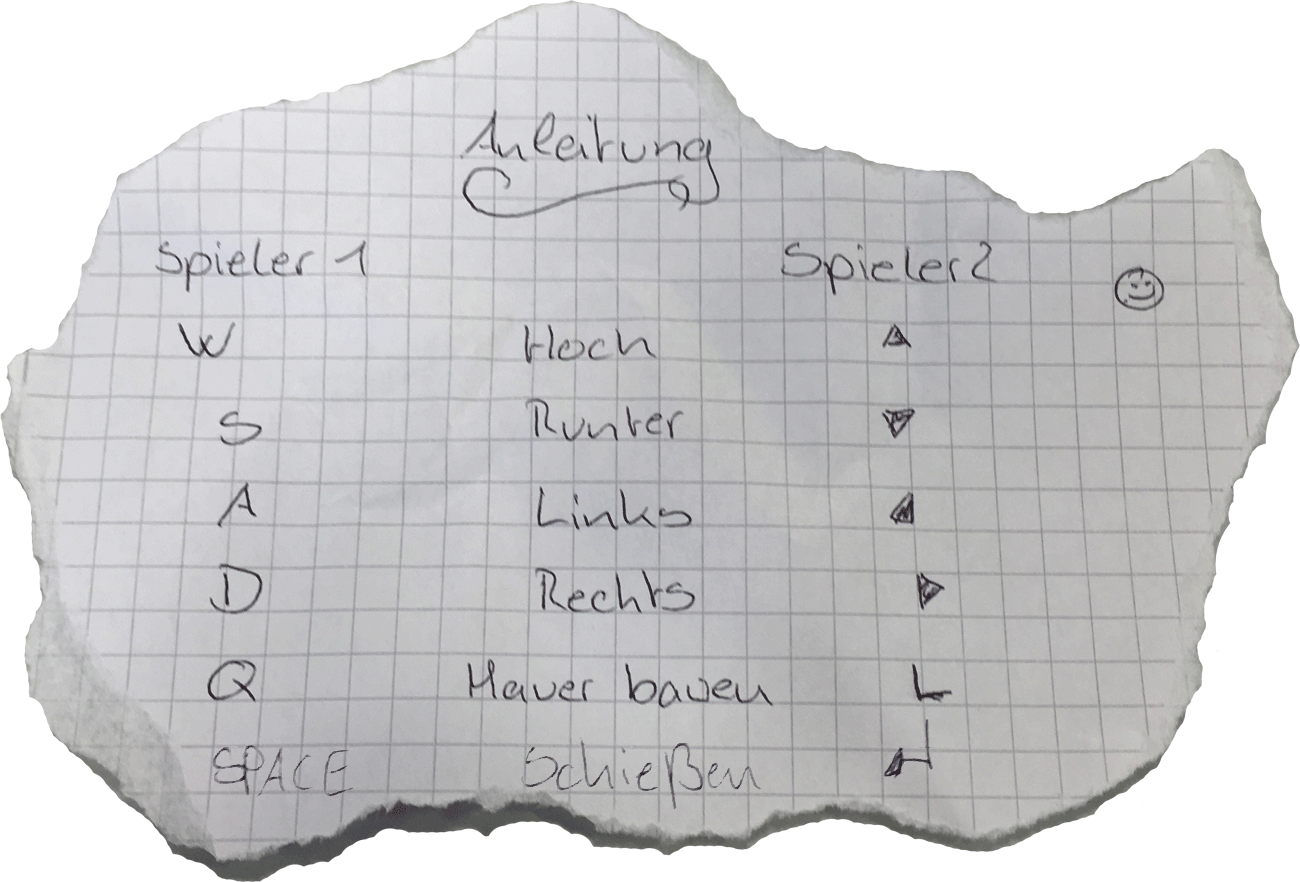 Anleitung
Spieler 1 Spieler 2 ☺
W Hoch ▲
S Runter ▼
A Links ◀
D Rechts ▶
Q Mauer bauen L
SPACE Schießen ↵